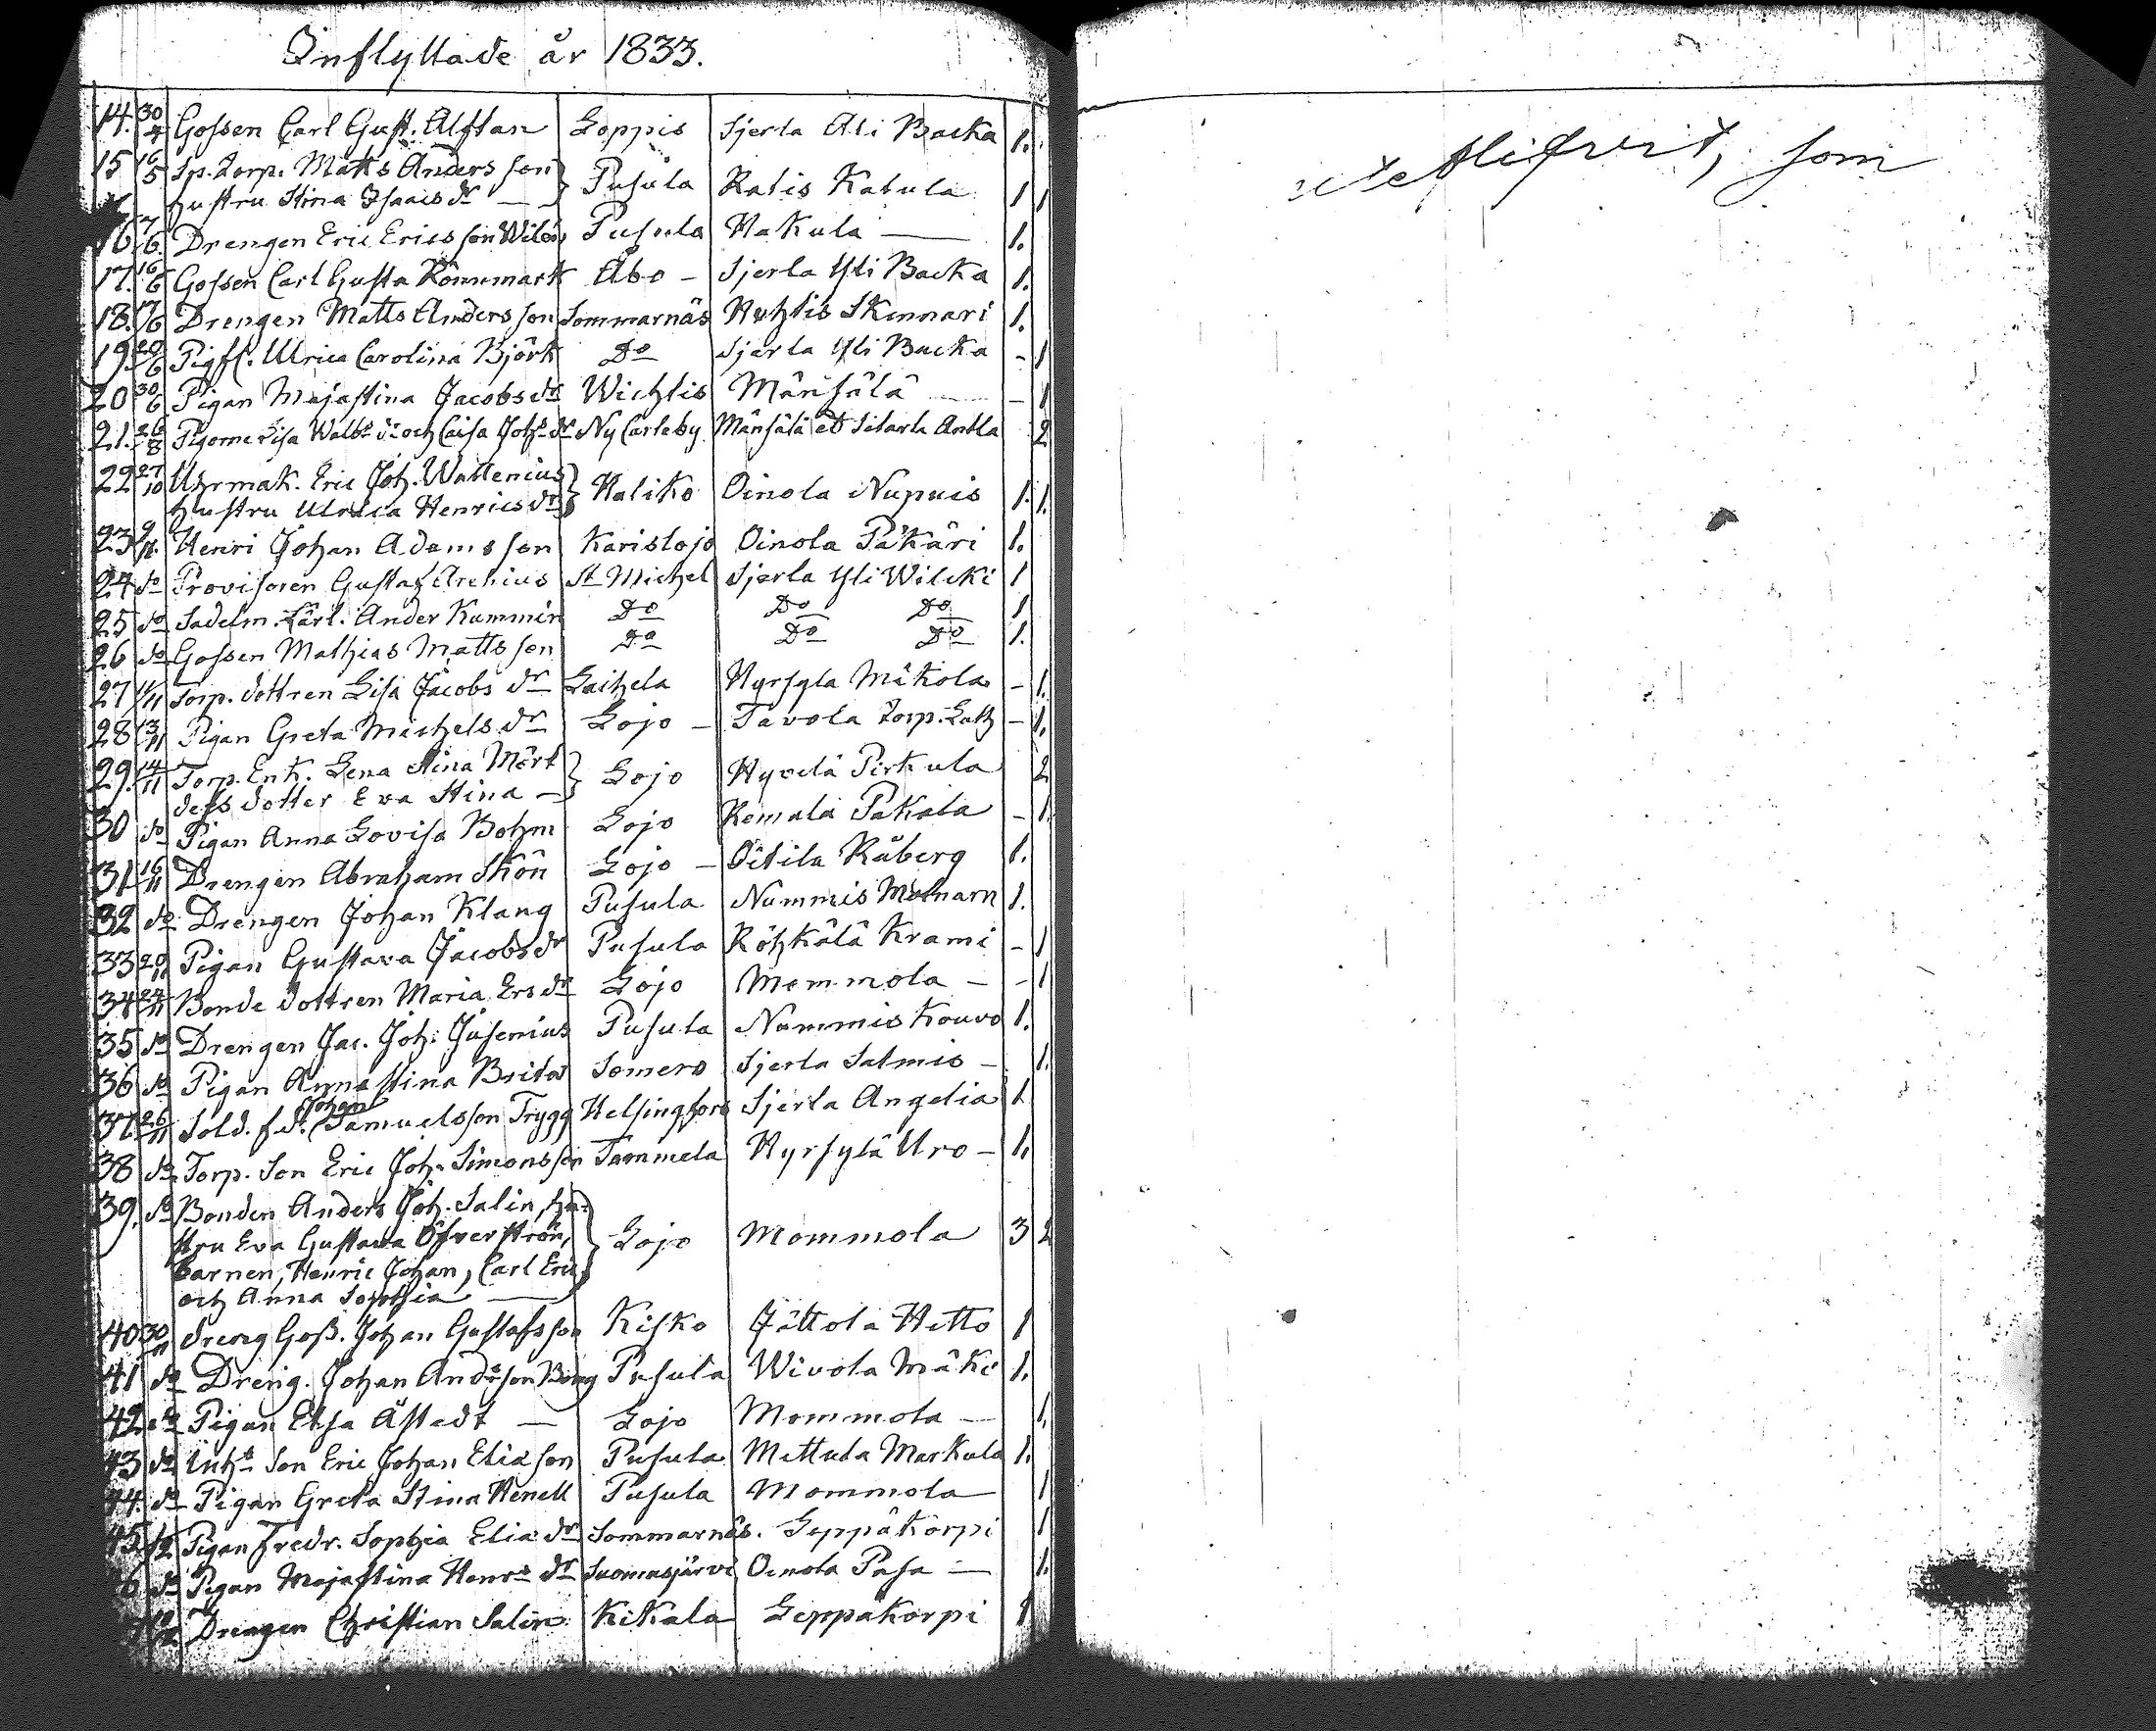 Inflyttade år 1833.
14. 30/4 Gossen Carl Gust. Alftan Loppis Sjerla Ali Backa 1.
15 16/5 Sp. Torp. Matts Andersson
Hustru Stina Isaacs dr — } Pusula Ratis Katula 1 1
16 7/6 Drengen Eric Ericsson Wilén Pusula Hakula — 1.
17. 16/6 Gossen Carl Gusta Rönnmark Åbo — Sjerla Yli Backa 1.
18. 17/6 Drengen Matts Andersson Sommarnäs Ruhtis Skinnari 1.
19. 20/6 Pigfl. Ulrica Carolina Björk Do Sjerla Yli Backa - 1
20 30/6 Pigan Majastina Jacobs dr Wichtis Mänsälä — - 1
21. 26/8 Pigorne Lisa Walbs dr och Caisa Johs dr Ny Carleby Mänsälä et Sitarla Antla 2
22 27/10 Uhrmak. Eric Joh. Wattenius
Hustru Ulrica Henrics dr } Haliko Oinola Nupuis 1. 1.
23 9/11. Henri Johan Adamsson Karislojo Oinola Päkäri 1.
24 do Provisoren Gustaf Arenius St Michel Sjerla Yli Wilcki 1
25 do Sadelm. Lärl. Ander Kummin Do Do Do 1
26 do Gossen Mathias Mattsson Do Do Do 1.
27 11/11 Torp. dottren Lisa Jacobs dr Laihela Hyrsyla Mikola - 1.
28 13/11 Pigan Greta Michels dr Lojo — Tavola Torp. Lath — 1.
29. 14/11 Torp. Enk. Lena Stina Mört
dess dotter Eva Stina — } Lojo Hyvelä Pirkula 2
30 do Pigan Anna Lovisa Bohm Lojo Remala Pakala - 1.
31 16/11 Drengen Abraham Skön Lojo — Oitila Råberg 1.
32 do Drengen Johan Klang Pusula Nummis Molnarn 1.
33 20/11 Pigan Gustava Jacobs dr Pusula Röhkälä Krami - 1
34 24/11 Bonde dottren Maria Ers dr Lojo Mommola — - 1
35 do Drengen Jac. Joh: Jusenius Pusula Nummis Kouvo 1.
36 do Pigan Annastina Brita Somero Sjerla Salmis — 1.
37. 26/11 Sold. f.d. Johan Samuelsson Trygg Helsingfors Sjerla Angelia 1
38 do Torp. Son Eric Joh. Simonsson Tammela Hyrsylä Uro — 1.
39. do Bonden Anders Joh. Salin, hu-
stru Eva Gustava Öfverström,
barnen, Henric Johan, Carl Eric
och Anna Sophia — } Lojo Mommola 3 2
40 30/11 dreng Goss. Johan Gustafsson Kisko Jättola Hetto 1
41 do Dreng. Johan Andrsson Borg Pusula Wivola Mäki 1.
42 do Pigan Elsa Åstedt — Lojo Mommola — 1.
43 do Inhs Son Eric Johan Eliasson Pusula Mettula Markula 1.
44. do Pigan Greta Stina Henell Pusula Mommola 1
45. /12 Pigan Fredr. Sophia Elia dr Sommarnäs. Leppäkorpi 1
6 do Pigan Majastina Henrs dr Suomusjärvi Oinola Pasa — 1.
7 /12 Drengen Christian Salin Kikala Leppäkorpi 1
som